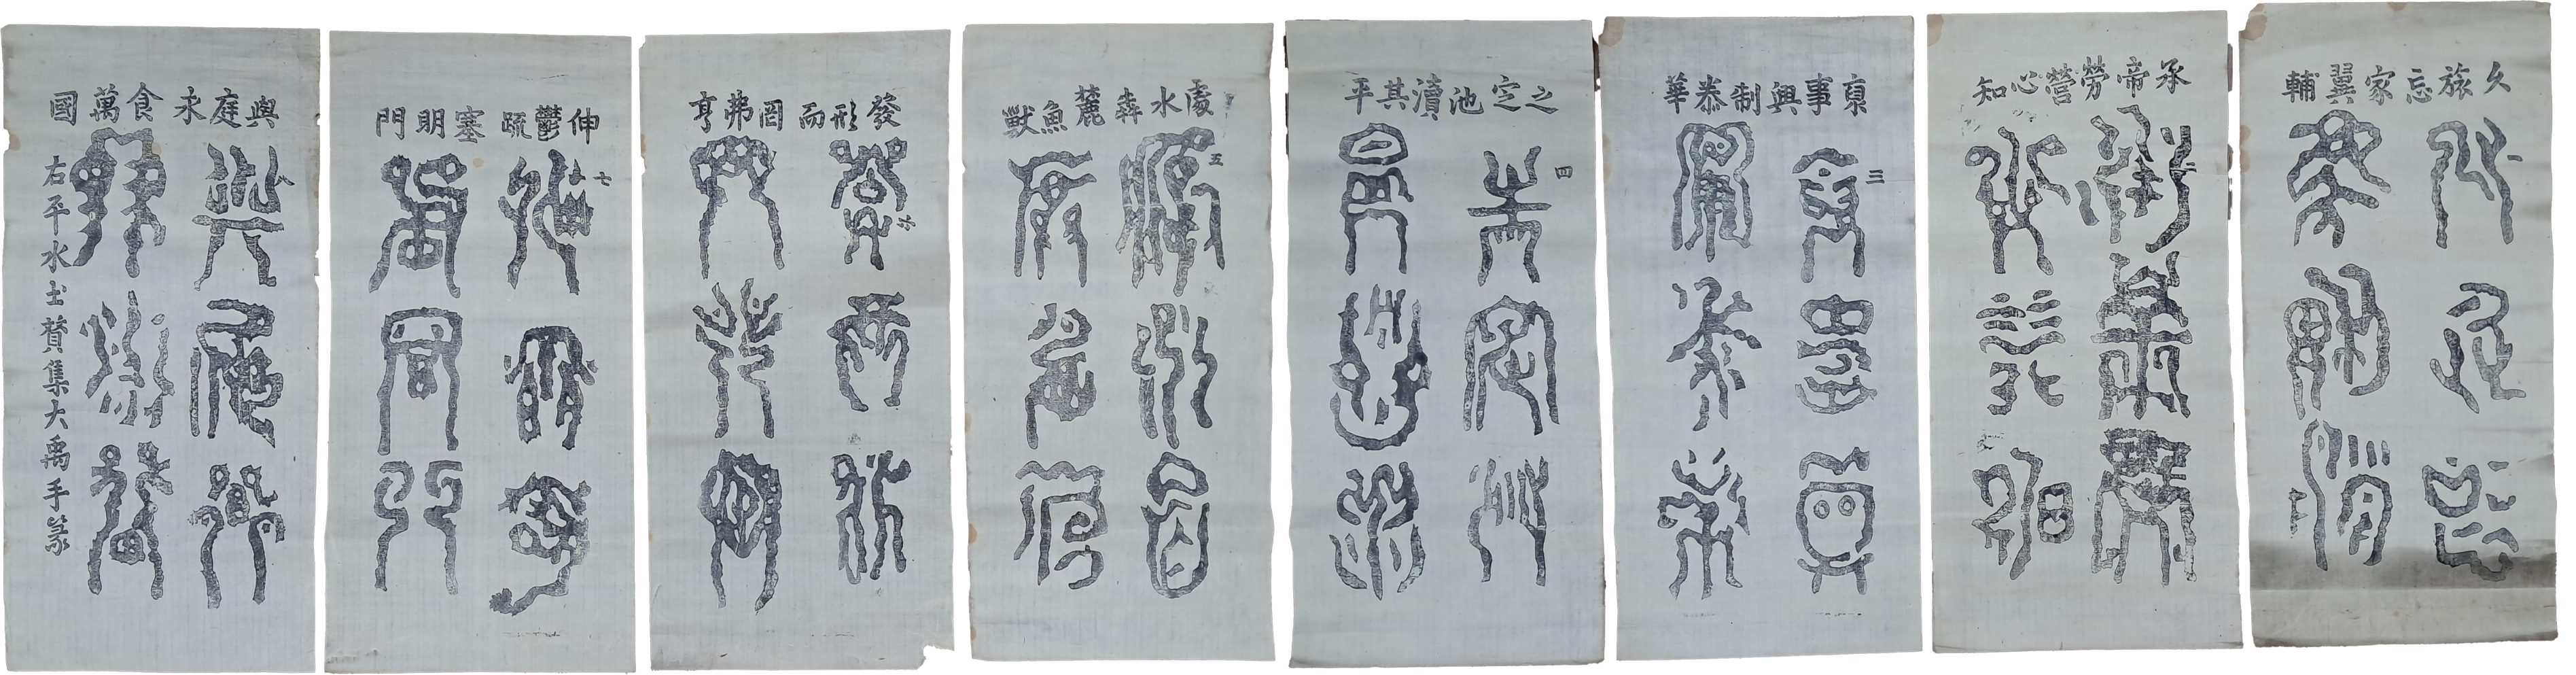 久旅忘家翼輔
一
承帝勞營心知
二
裒事興制泰華
三
之定池瀆其平
四
處水犇麓魚獸
五
發形而罔弗亨
六
伸鬱疏塞明門
七
與庭永食萬國
八
右平水土贊集大禹手篆